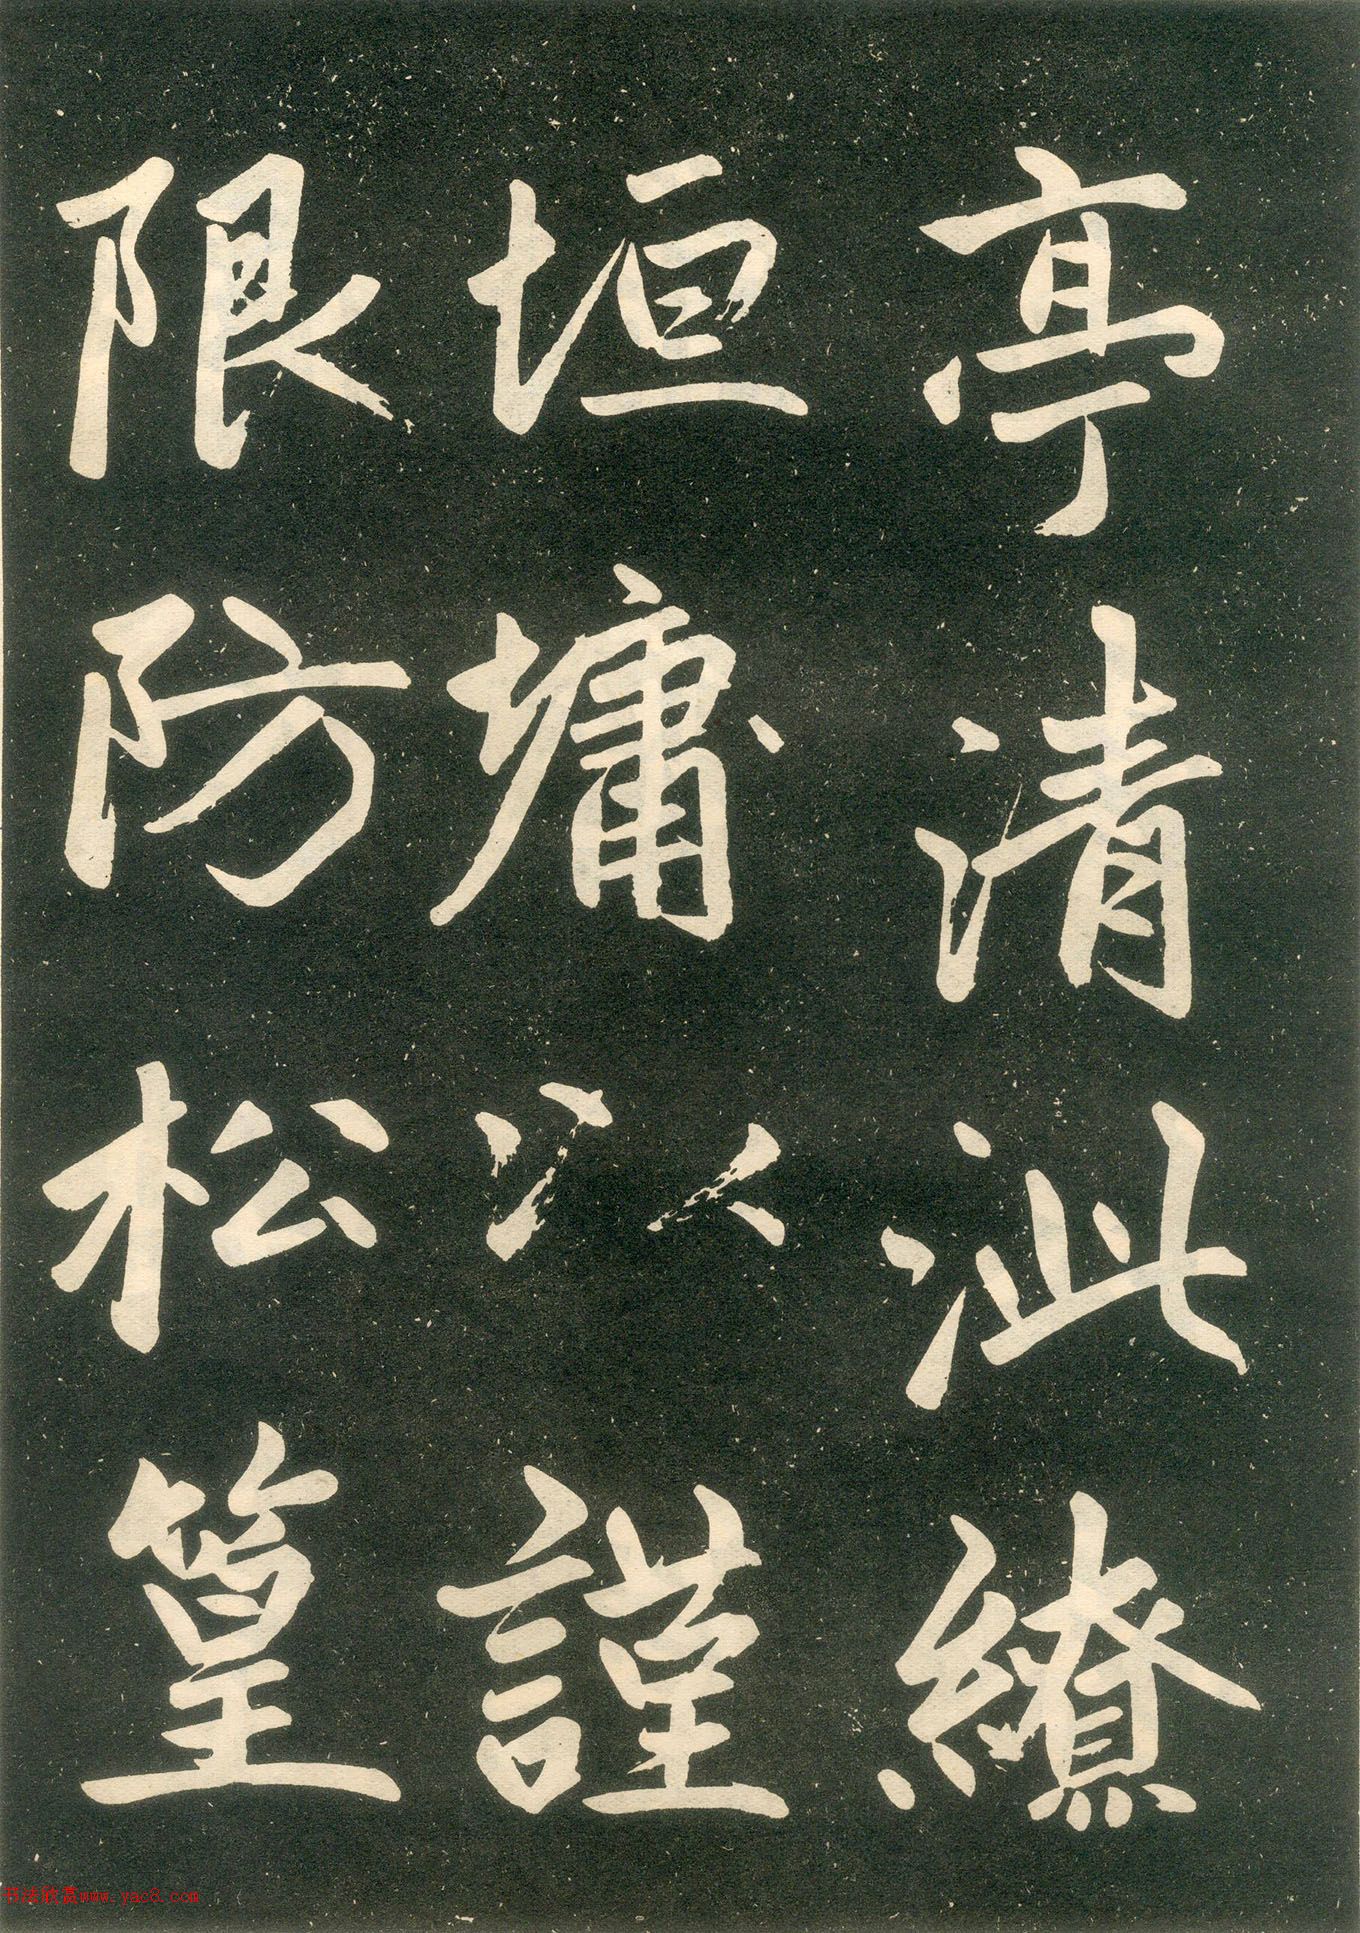 亭清泚繚
垣墉以謹
限防松篁
书法欣赏www.yac8.com